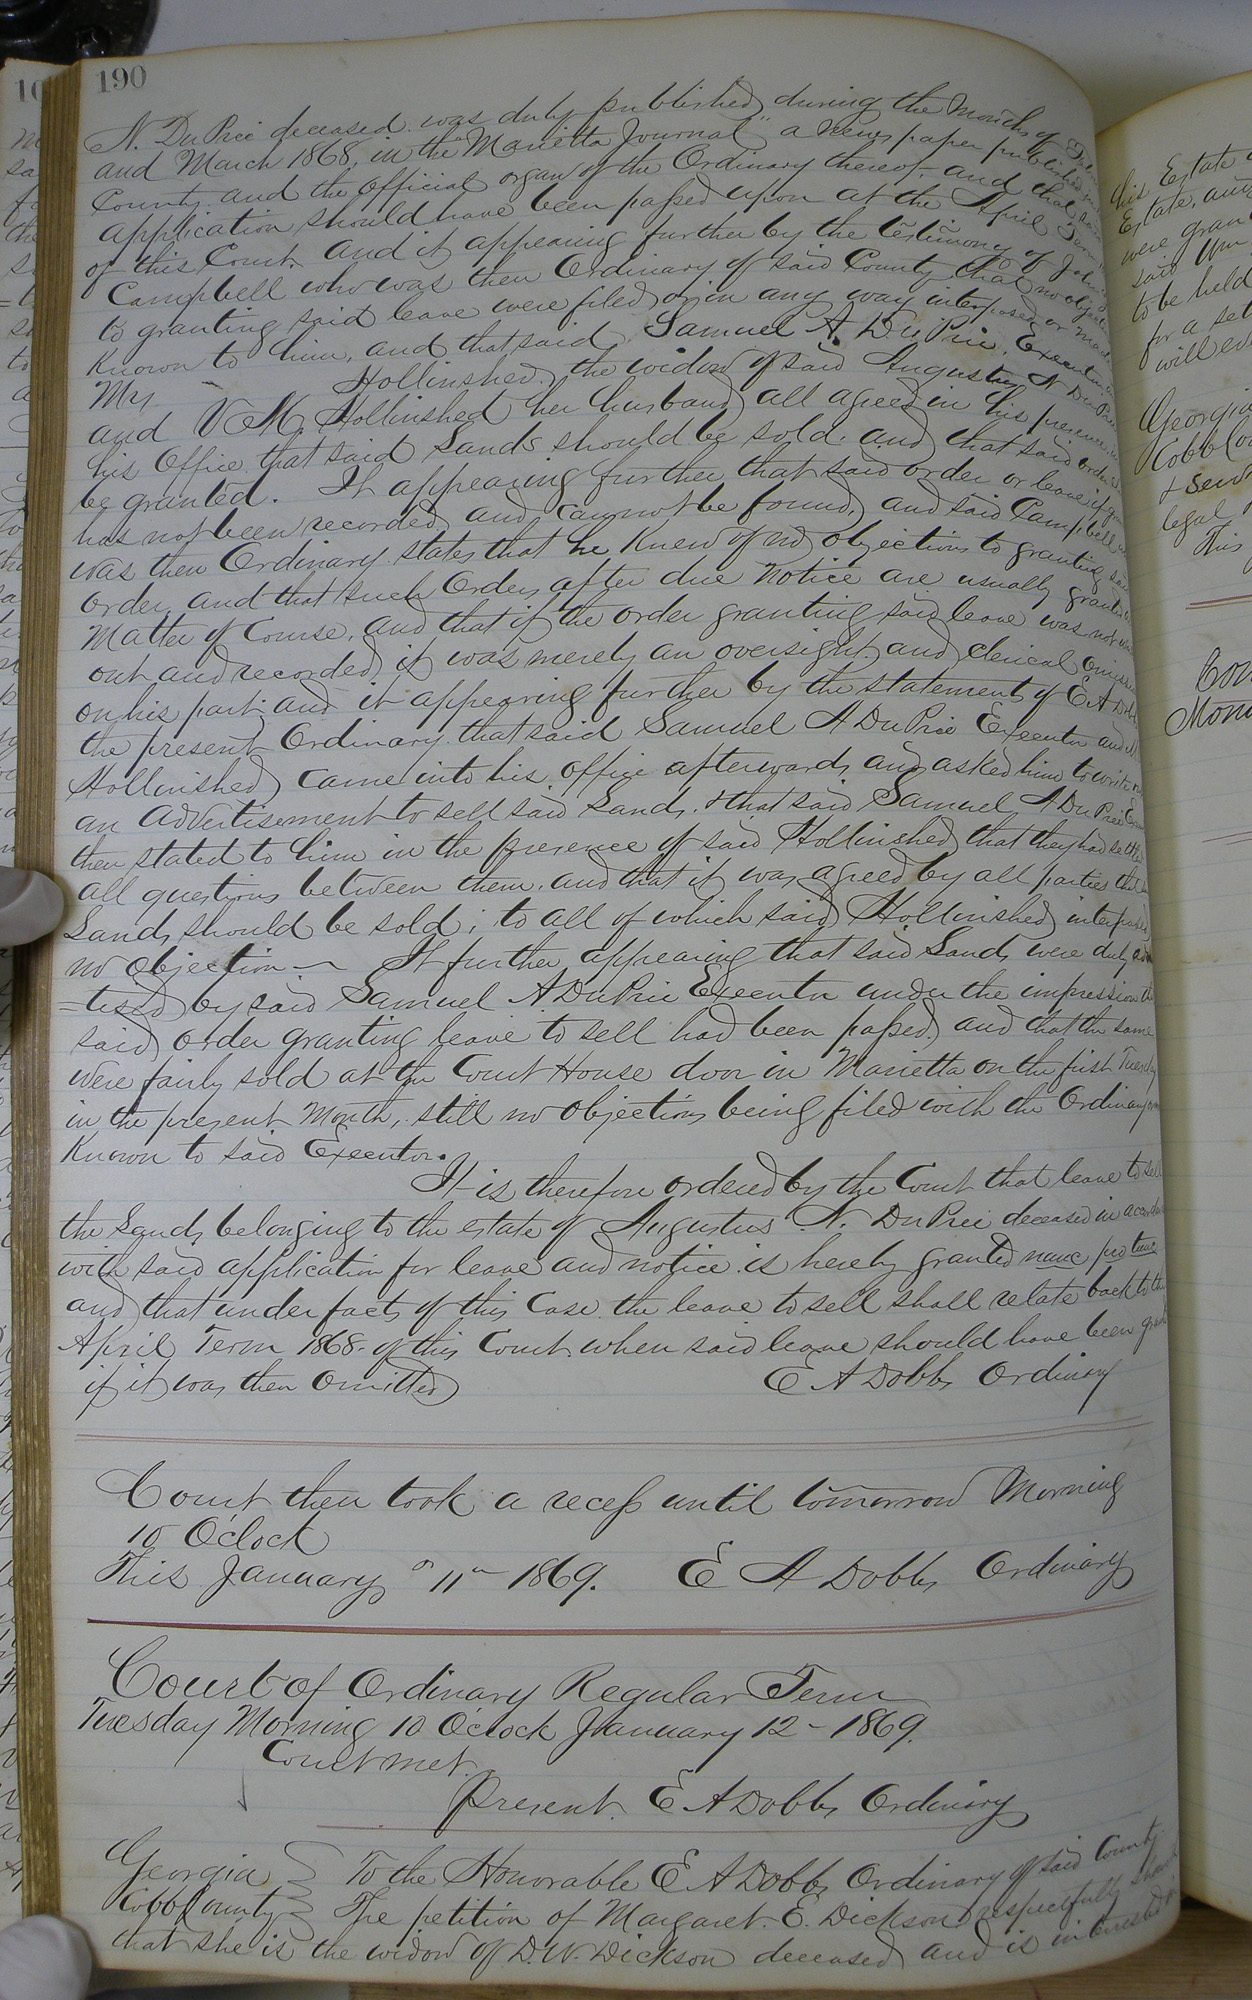 190
N. DuPree deceased was duly published during the Months of
and March 1868, in the "Marietta Journal" a news paper published in
County and the official organ of the Ordinary thereof, and that said
application should have been passed upon at the April Term
of this Court. and it appearing further by the testimony of John G
Campbell who was then Ordinary of said County that no objection
to granting said leave were filed or in any way interposed or made
Known to him, and that said Samuel A. DuPree, Executor
Mrs Hollinshed, the widow of said Augustus N DuPree
and V M. Hollinshed her husband all agreed in his presence in
his Office that said Lands should be sold. and that said order
be granted. It appearing further that said order or leave if
has not been recorded and cannot be found, and said Campbell
was then Ordinary states that he Knew of no objections to granting said
order and that such Orders after due notice are usually granted
Matter of Course, and that if the order granting said leave was not
out and recorded it was merely an oversight and clerical omission
on his part; and it appearing further by the statement of E A Dobbs
the present Ordinary that said Samuel A DuPree Executor and
Hollinshed came into his office afterwards and asked him to write
an advertisement to sell said Lands. & that said Samuel A DuPree
then stated to him in the presence of said Hollinshed that they had settled
all questions between them. and that it was agreed by all parties that
Lands should be sold; to all of which said Hollinshed interposed
no objection — It further appearing that said Lands were duly
=tised by said Samuel A DuPree Executor under the impression
said order granting leave to sell had been passed. and that the same
were fairly sold at the Court House door in Marietta on the first Tuesday
in the present Month, still no objections being filed with the Ordinary or
Known to said Executor.
It is therefore ordered by the Court that leave to sell
the Lands belonging to the estate of Augustus N. DuPree deceased in accordance
with said application for leave and notice is hereby granted nunc pro tunc
and that under facts of this Case the leave to sell shall relate back to the
April Term 1868. of this Court when said leave should have been granted
if it was then omitted E A Dobbs Ordinary
Court then took a recess until tomorrow Morning
10 O'clock
This January 11th 1869. E A Dobbs Ordinary
Court of Ordinary Regular Term
Tuesday Morning 10 O'clock January 12 - 1869.
Court met.
Present. E A Dobbs Ordinary
Georgia } To the Honorable E A Dobbs Ordinary of said County
Cobb County } The petition of Margaret. E. Dickson respectfully
that she is the widow of D. W. Dickson deceased and is interested
his Estate
Estate, and
were gran
said Wm
to be held
for a set
will
Georgia
Cobb Cou
legal
This